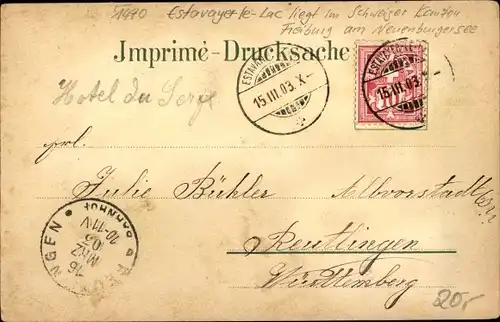 1440 Estavayer-le-Lac liegt im Schweizer Kanton
Freiburg am Neuenburgersee
Imprimé-Drucksache
ESTAVAYER-LE-LAC
15.III.03.X-
ESTAVAYER-LE-LAC
15.III.03.
10
Hotel du
Frl.
Julie Bühler Albvorstadt
Reutlingen
Württemberg
REUTLINGEN BAHNHOF
16
MRZ
03
10-11V
20,-